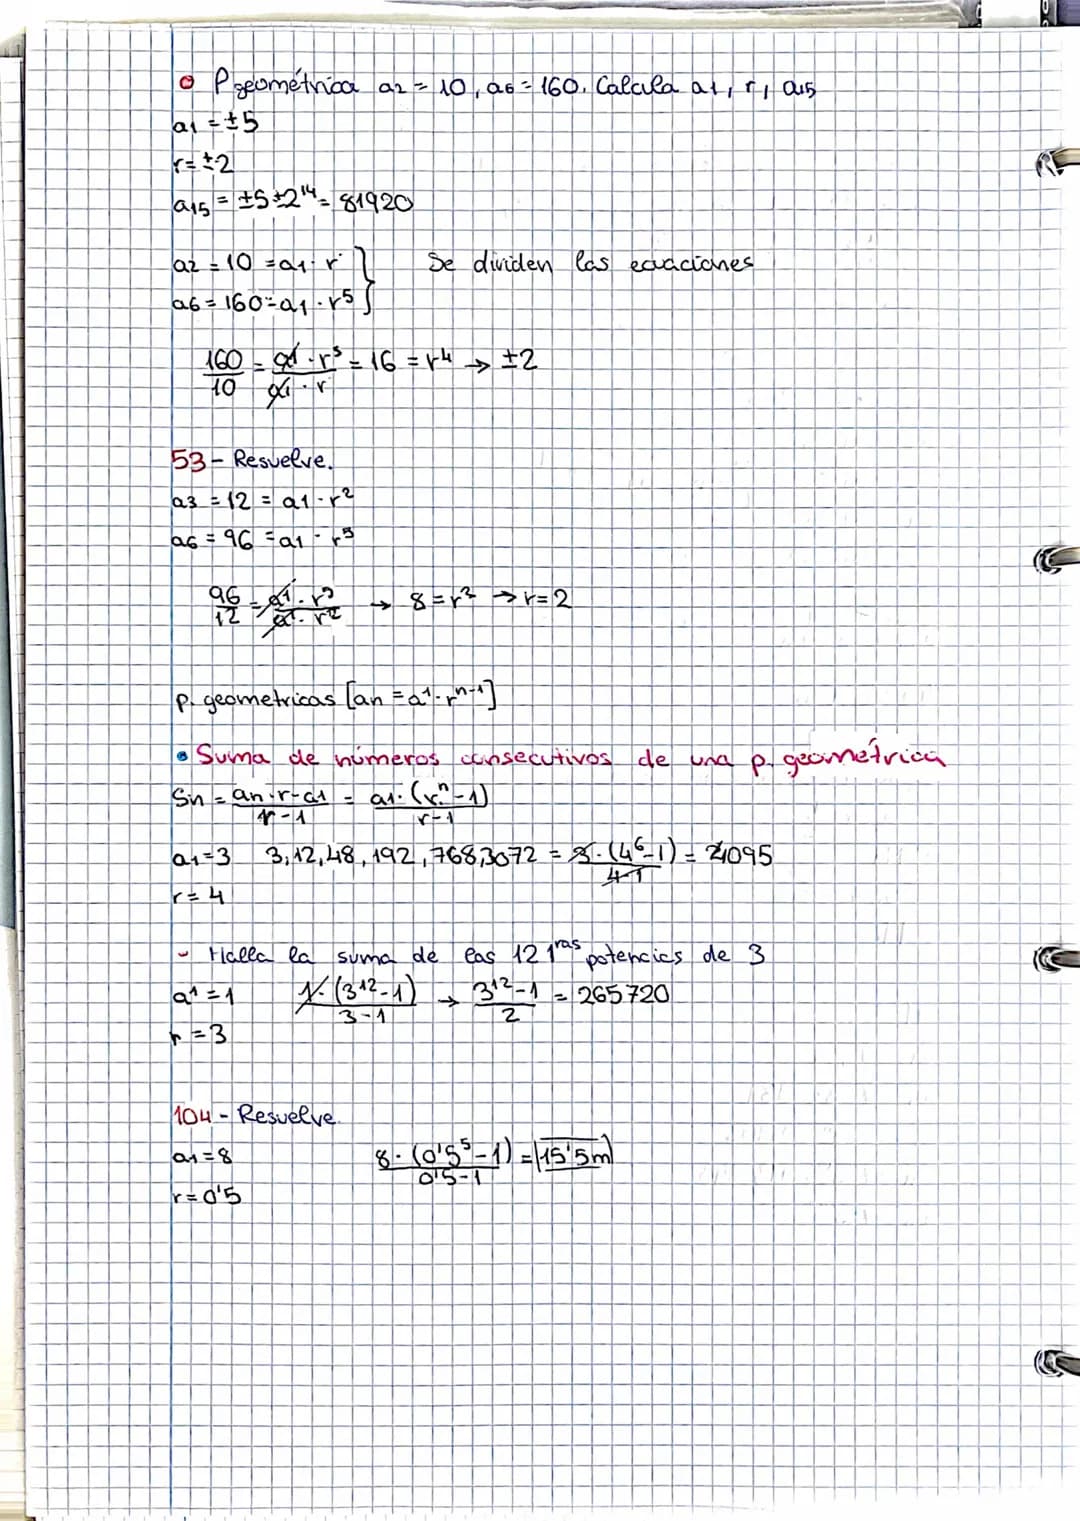 P geométrica a2 = 10, a6 = 160. Calcula a1, r, a15
a1 = ±5
r = ±2
a15 = ±5 ±2¹⁴ = 81920
a2 = 10 = a1 · r } Se dividen las ecuaciones
a6 = 160 = a1 · r⁵
160/10 = a1 · r⁵/a1 · r = 16 = r⁴ → ±2
53 - Resuelve.
a3 = 12 = a1 · r²
a6 = 96 = a1 · r⁵
96/12 = a1 · r⁵/a1 · r² → 8 = r³ → r = 2
p. geometricas [an = a¹ · rⁿ⁻¹]
• Suma de números consecutivos de una p. geométrica
Sn = an · r - a1/r - 1 = a1 · (rⁿ - 1)/r - 1
a1 = 3 3, 12, 48, 192, 768, 3072 = 3 · (4⁶ - 1)/4 - 1 = 4095
r = 4
- Halla la suma de las 12 1ras potencias de 3
a¹ = 1 1 · (3¹² - 1)/3 - 1 → 3¹² - 1/2 = 265720
r = 3
104 - Resuelve.
a1 = 8 8 · (0'5⁵ - 1)/0'5 - 1 = 15'5m
r = 0'5